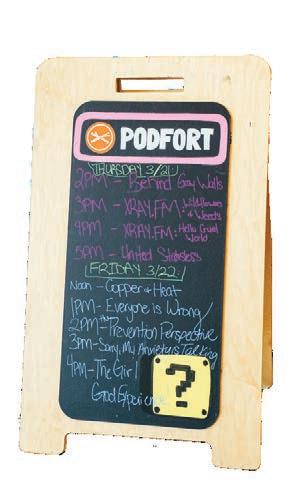 PODFORT
THURSDAY 3/21
2PM - Behind Gray Walls
3PM - XRAY.FM: Wildflowers
& Weeds
4PM - XRAY.FM: Hello Cruel
World
5PM - United Staters
FRIDAY 3/22
Noon - Copper & Heat
1PM - Everyone is Wrong
2PM - Prevention Perspective
3PM - Sorry, My Anxiety is Talking
4PM - The Girl
God Experience
?